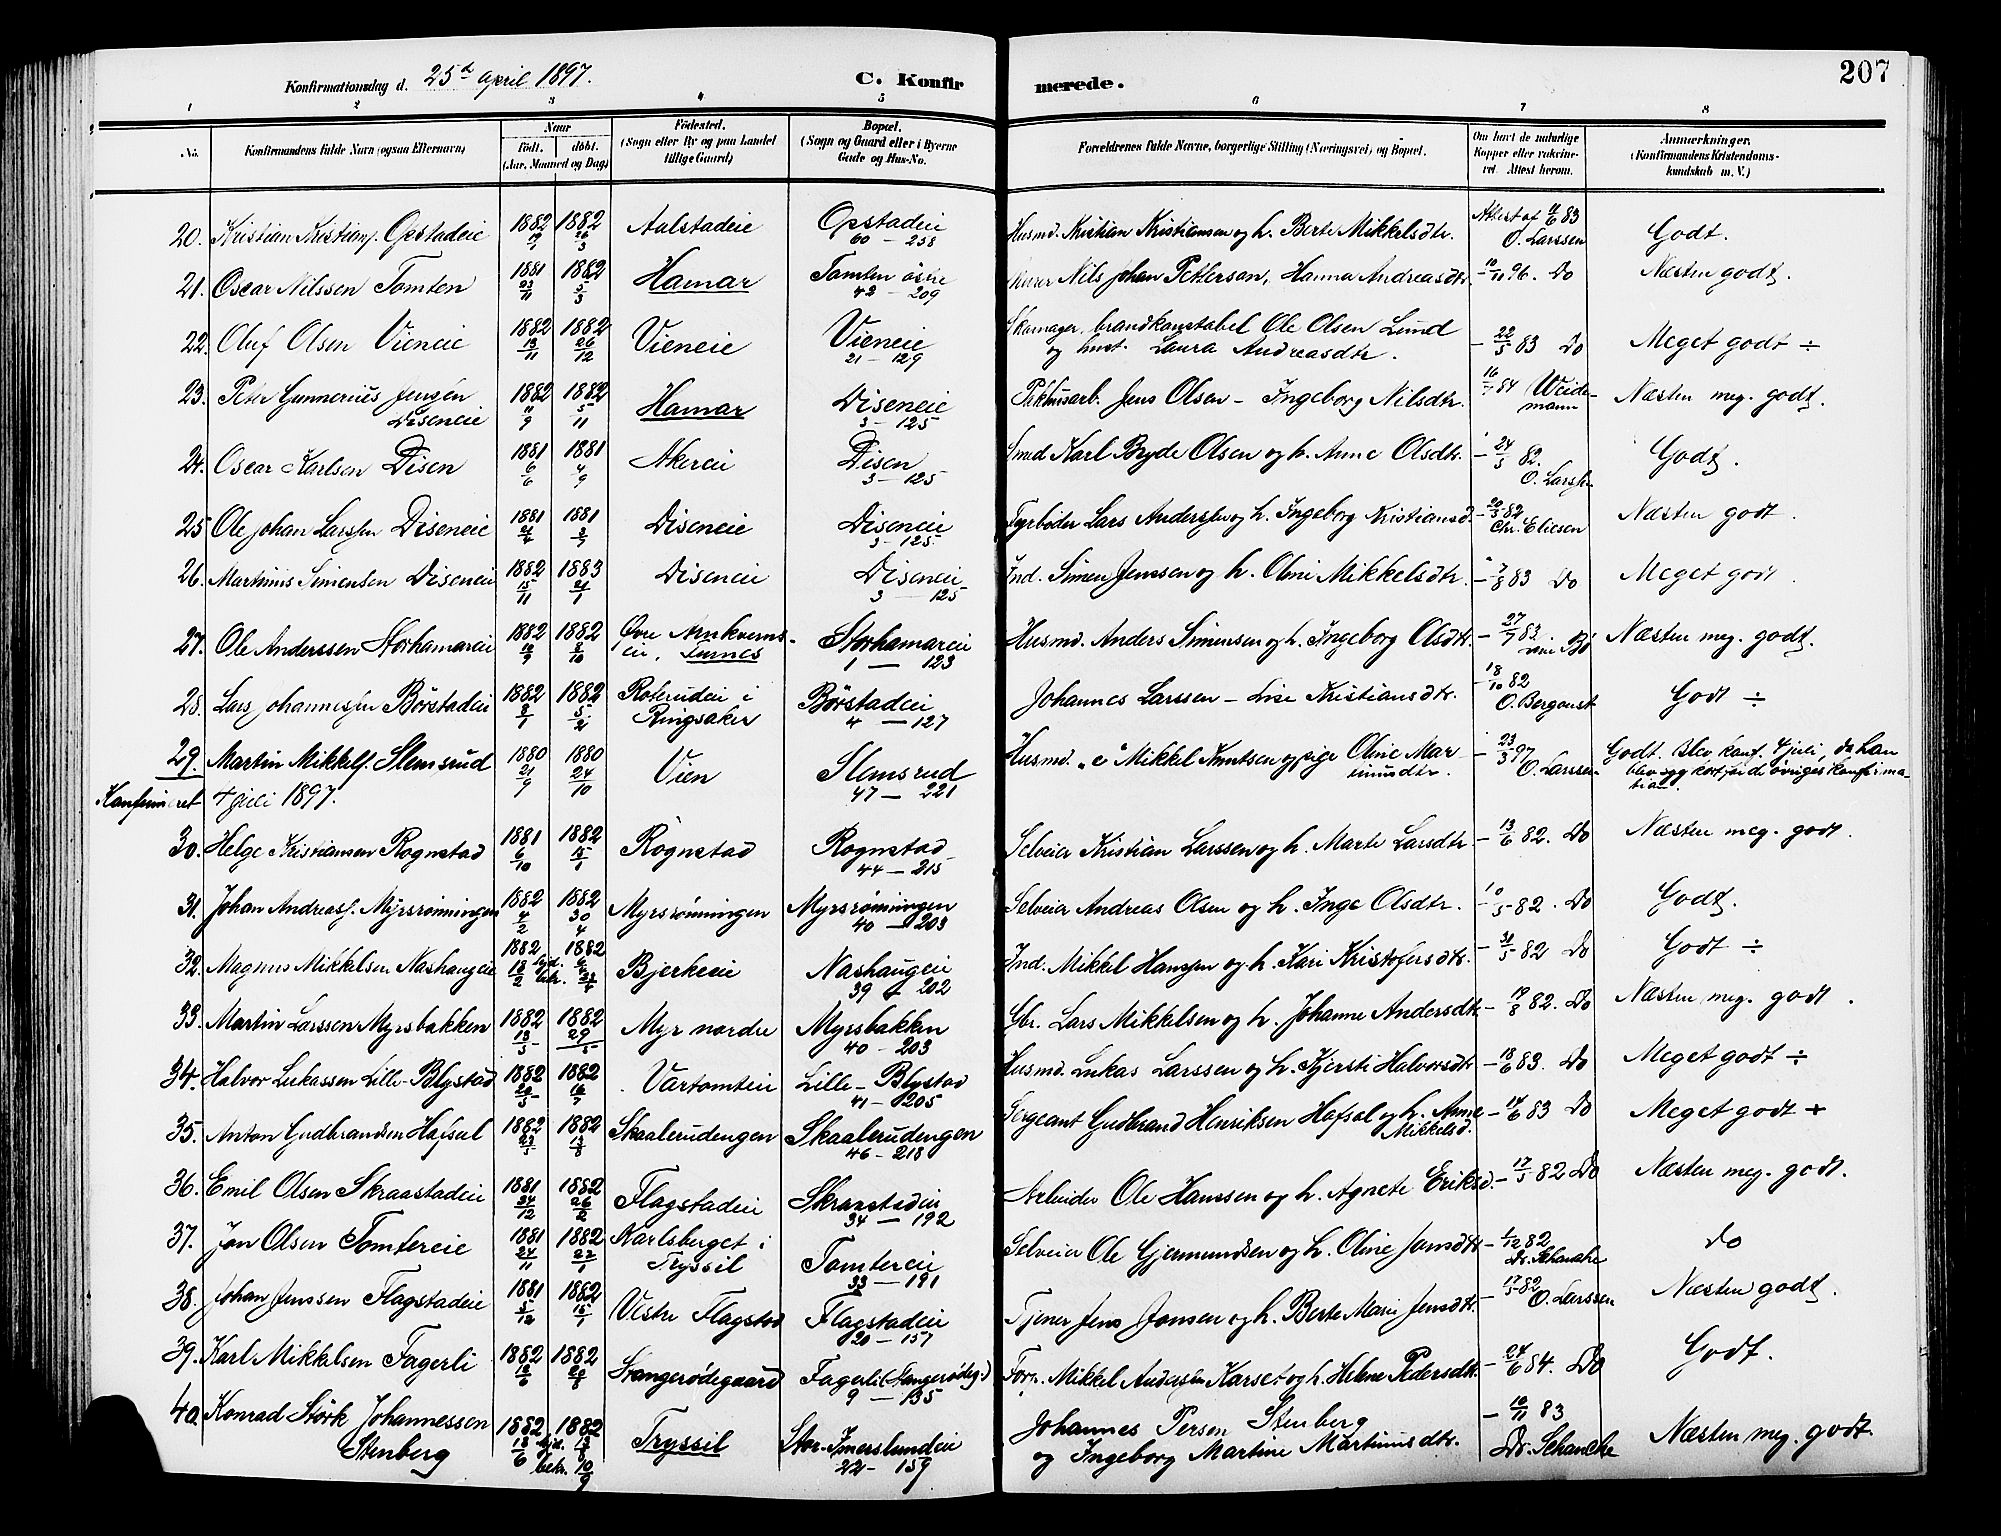 207
Konfirmationsdag d. 25de april 1897. C. Konfirmerede.
1 2 3 4 5 6 7 8
No. Konfirmandens fulde Navn (ogsaa Efternavn) Naar født. døbt. (Aar, Maaned og Dag) Fødested. (Sogn eller By og paa Landet tillige Gaard) Bopæl. (Sogn og Gaard eller i Byerne Gade og Hus-No. Forældrenes fulde Navne, borgerlige Stilling (Næringsvei) og Bopæl. Om havt de naturlige Kopper eller vakcineret. Attest herom. Anmærkninger. (Konfirmandens Kristendomskundskab m. V.)
20. Kristian Kristians. Opstadeie 1882 1882 26/3 Aalstadeie Opstadeie 60 – 258 Husmd. Kristian Kristiansen og h. Berte Mikkelsdtr. Attest af 11/6 83 O. Larssen Godt.
21. Oscar Nilssen Tomten 1881 23/11 1882 5/3 Hamar Tomten østre 42 – 209 Murer Nils Johan Petterson, Hanna Andreasdtr. – 10/11 96. Do Næsten godt.
22. Oluf Olsen Vieneie 1882 13/11 1882 26/12 Vieneie Vieneie 21 – 129 Skomager, brandkonstabel Ole Olsen Lund
og hust. Laura Andreasdtr. – 22/5 83 Do Meget godt ÷
23. Peter Gunnerius Jensen
Diseneie 1882 11/9 1882 5/11 Hamar Diseneie 3 – 125 Pakhusarb. Jens Olsen – Ingeborg Nilsdtr. 84 Weidemann Næsten meg. godt.
24. Oscar Karlsen Disen 1881 6/6 1881 4/9 Akereie Disen 3 – 125 Smed Karl Bryde Olsen og h. Anne Olsdtr. – 24/5 82. O. Larssen Godt.
25 Ole Johan Larssen Diseneie 1881 21/4 1881 Diseneie Diseneie 3 – 125. Fyrbøder Lars Anderssen og h. Ingeborg Kristiansd. 82 Chr. Eliesen Næsten godt.
26. Martinius Simensen Diseneie 1882 15/11 1883 21/1 Diseneie Diseneie 3 – 125 Ind. Simen Jenssen og h. Oline Mikkelsdtr. – 7/8 83 Do Meget godt.
27. Ole Anderssen Storhamareie 1882 10/9 1882 8/10 Øvre Arnkvernseie, Furnes Storhamareie 1 – 123 Husmd. Anders Simensen og h. Ingeborg Olsdtr. – 27/9 83. Næsten meg. godt.
28. Lars Johannessen Børstadeie 1882 8/1 1882 5/2 Roterudeie i
Ringsaker Børstadeie 4 – 127 Johannes Larssen – Lise Kristiansdtr. – 18/10 82 O. Berganst Godt ÷
29. Martin Mikkels. Slemsrud 1880 21/9 1880 24/10 Vien Slemsrud 47 – 221 Husmd. "e" Mikkel Knutsen og pige Oline Marinusdtr. – 23/3 97 O. Larssen Godt. Blev konf. 4 juli, da han
blev syg kort før de øvriges konfirmation.
Konfirmeret 4 juli 1897.
30. Helge Kristiansen Rognstad 1881 6/10 1882 15/1 Rognstad Rognstad 44 – 215 Selveier Kristian Larssen og h. Marte Larsdtr. – 13/6 82. Do Næsten meg. godt.
31. Johan Andreas. Myrsrønningen 1882 4/2 1882 30/4 Myrsrønningen Myrsrønningen 40 – 203 Selveier Andreas Olsen og h. Inge Olsdtr. – 10/5 82. Do Godt.
32. Magnus Mikkelsen Nashaugeie 1882 18/2 hjd. bekr. 1882 Bjerkeeie Nashaugeie 39 – 202 Ind. Mikkel Hanssen og h. Kari Kristofersdtr. – 31/5 82 Do Godt ÷
33. Martin Larssen Myrsbakken 1882 13/5 1882 29/5 Myr nordre Myrsbakken 40 – 203 Gbr. Lars Mikkelsen og h. Johanne Andersdtr. – 19/8 82. Do Næsten meg. godt.
34. Halvor Lukassen Lille-Blystad 1882 20/5 1882 16/7 Vartomteie Lille-Blystad 41 – 205 Husmd. Lukas Larssen og h. Kjersti Halvorsdtr. – 18/6 83. Do Meget godt ÷
35. Anton Gudbrandsen Hafsal 1882 23/5 1882 13/8 Skaalerudengen Skaalerudengen 46 – 218 Sergeant Gudbrand Henriksen Hafsal og h. Anne
Mikkelsd. – 14/6 83 Do Meget godt +
36. Emil Olsen Skraastadeie 1881 24/12 1882 26/2 Flagstadeie Skraastadeie 34 – 192 Arbeider Ole Hanssen og h. Agnete Eriksd. – 17/5 82 Do Næsten meg. godt.
37. Jon Olsen Tomtereie 1881 24/11 1882 22/1 Karlsberget i
Tryssil Tomtereie 33 – 191 Selveier Ole Gjermundsen og h. Oline Jonsdtr. 82 Dr. Schancke do
38. Johan Jenssen Flagstadeie 1881 5/12 1882 15/1 Vestre Flagstad Flagstadeie 20 – 157 Tjener Jens Jonsen og h. Berte Marie Jensdtr. – 17/5 82 O. Larssen Næsten godt.
39. Karl Mikkelsen Fagerli 1882 12/6 1882 20/8 Stangerødegaard Fagerli (Stangerødeg.) 9 – 135 Forp. Mikkel Anderssen Karset og h. Helene Pedersdtr. – 24/6 84. Do Godt.
40. Konrad Størk Johannessen
Stenberg 1882 18/6 hjd. bekr. 1882 10/9 Tryssil Stor-Imerslundeie 22 – 159 Johannes Persen Stenberg
og Ingeborg Martine Martinusdtr. – 10/11 83 Dr. Schancke Næsten meg. godt.